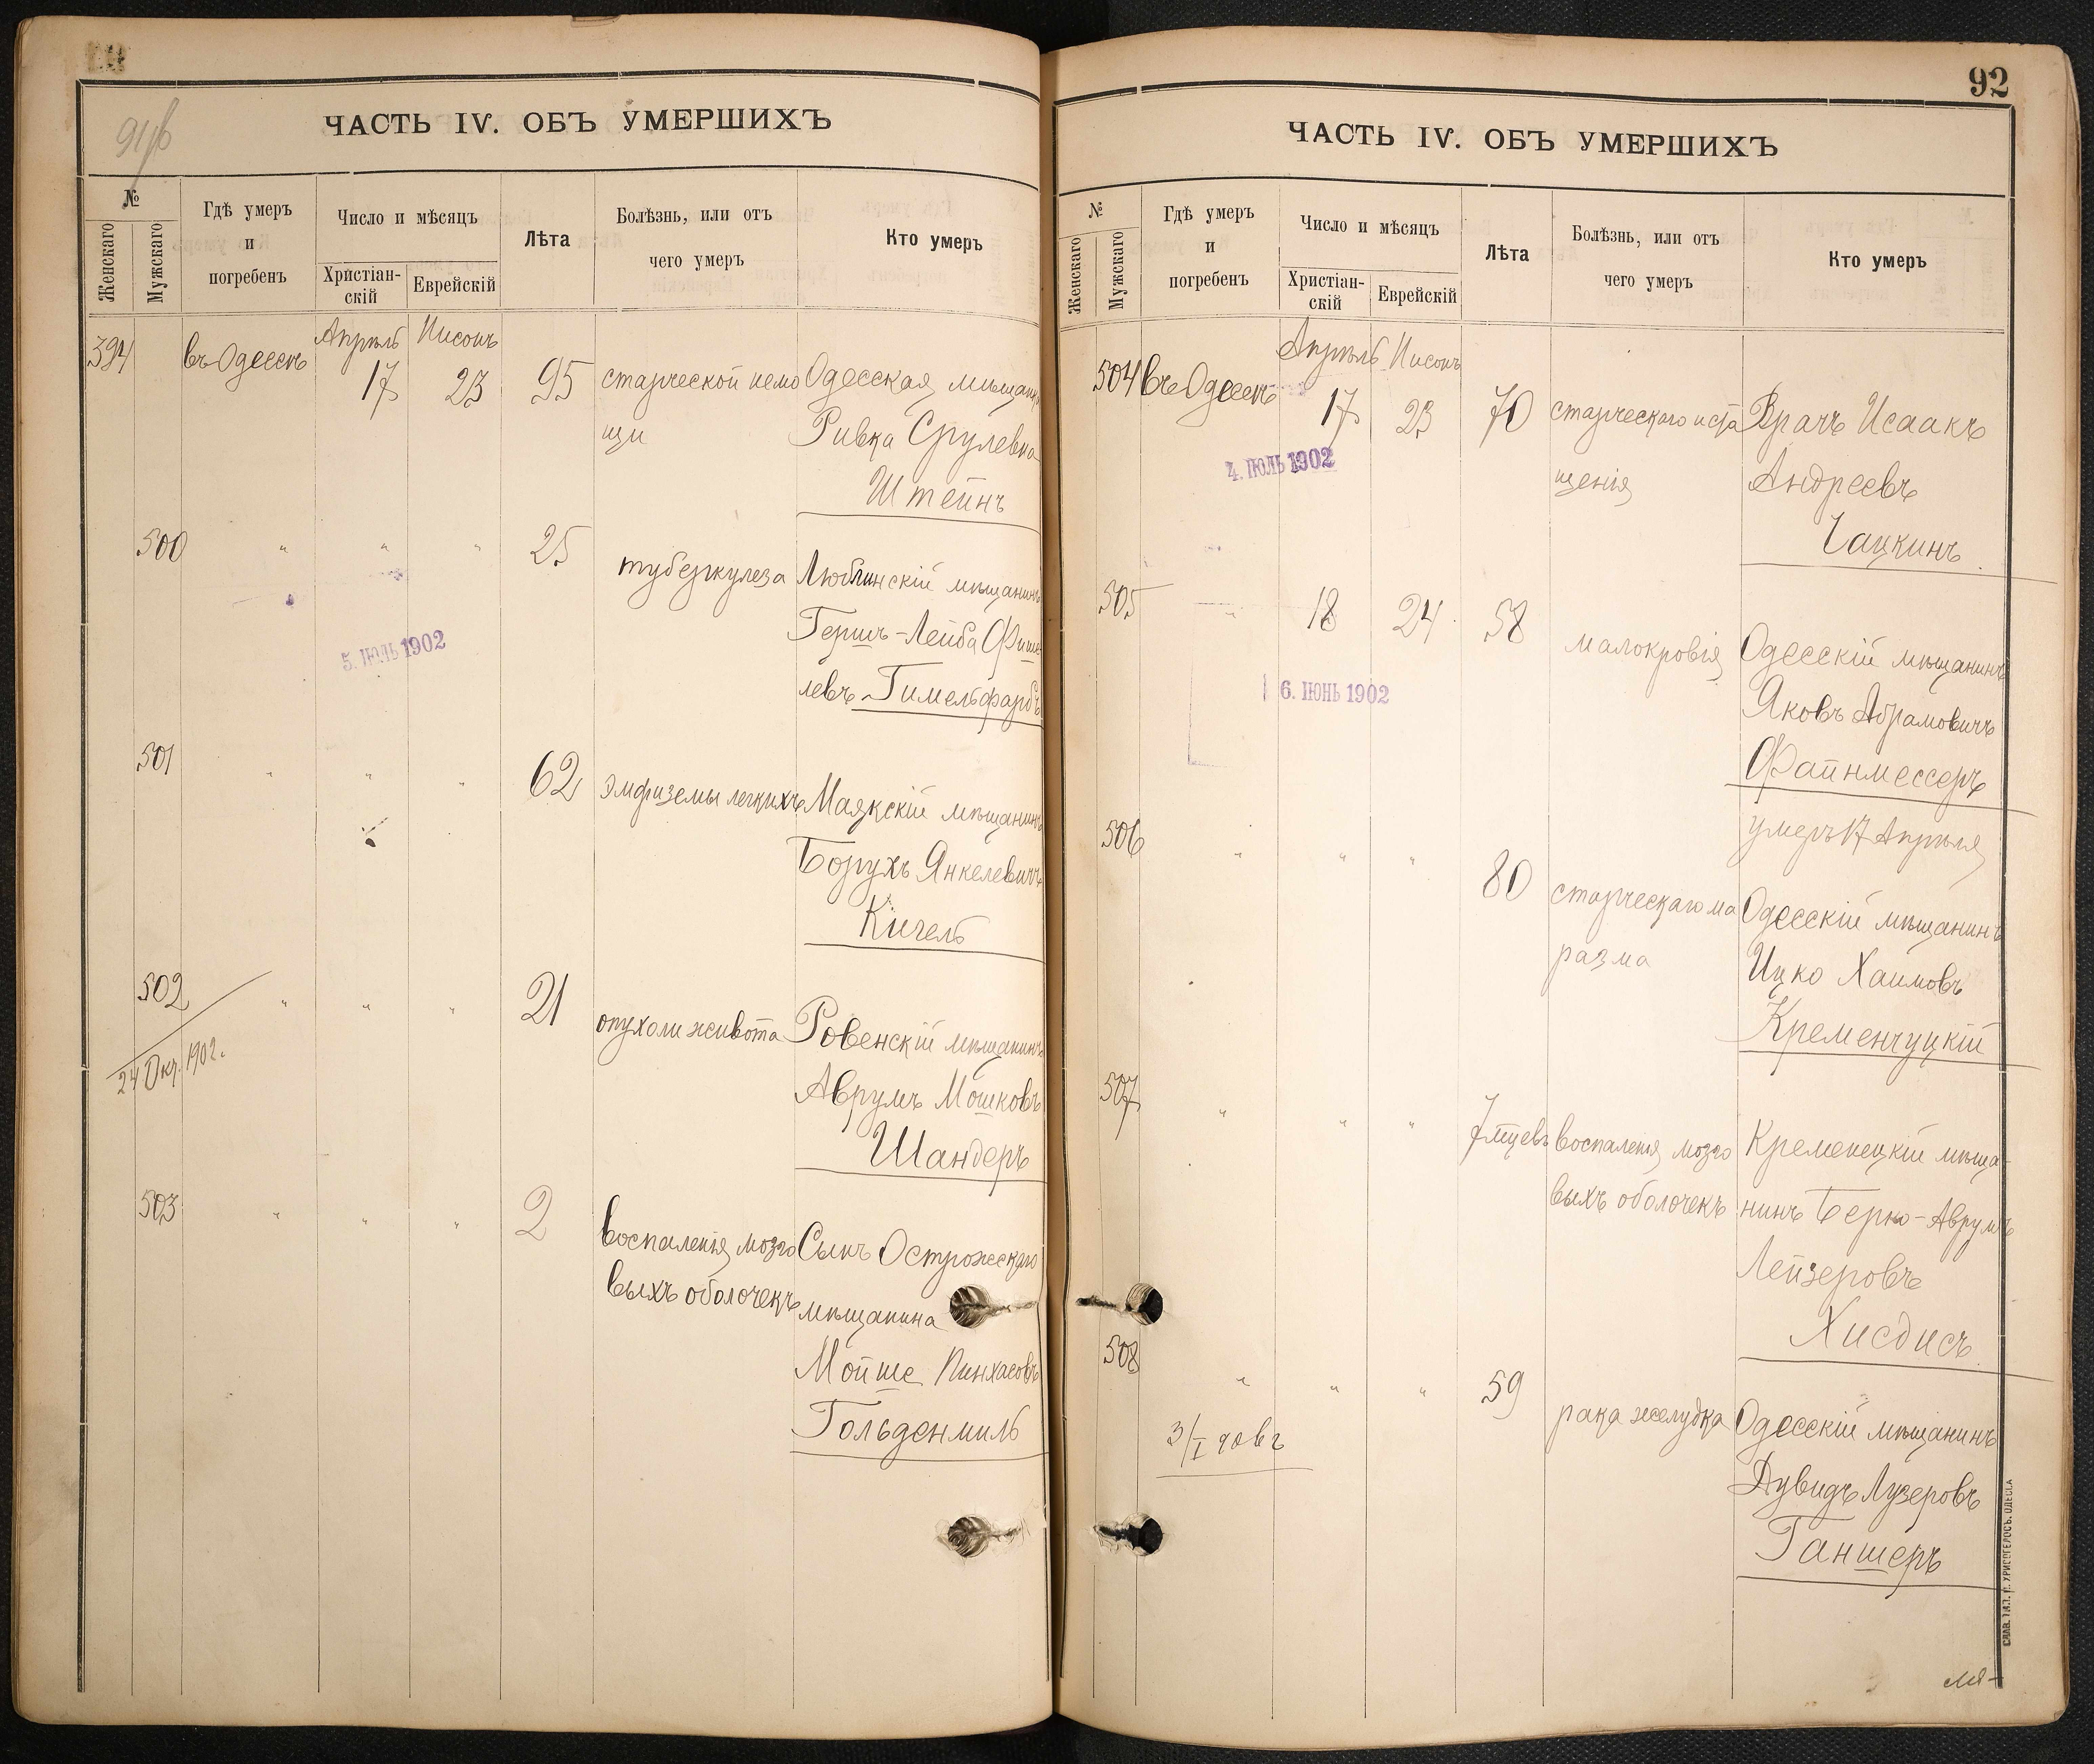 91/б
ЧАСТЬ IV. ОБЪ УМЕРШИХЪ
№
Женскаго
Мужскаго
Гдѣ умеръ
и
погребенъ
Число и мѣсяцъ
Христіан-
скій
Еврейскій
Лѣта
Болѣзнь, или отъ
чего умеръ
Кто умеръ
Апрѣль Нисонъ
394 въ Одессѣ 17 23 95 старческой немо Одесская мѣщанка
щи Ривка Срулевна
Штейнъ
500 " " " 25 туберкулеза Люблинскій мѣщанинъ
Гершъ-Лейба Фише-
левъ Гимельфарбъ
5. ІЮЛЬ 1902
501 " " " 62 эмфиземы легкихъ Маякскій мѣщанинъ
Борухъ Янкелевичъ
Кичель
502 " " " 21 опухоли живота Ровенскій мѣщанинъ
24 Окт. 1902.
Аврумъ Мошковъ
Шандеръ
503 " " " 2 воспаленія мозго Сынъ Острожскаго
выхъ оболочекъ мѣщанина
Мойше Пинхасовъ
Гольденмиль
92
ЧАСТЬ IV. ОБЪ УМЕРШИХЪ
№
Женскаго
Мужскаго
Гдѣ умеръ
и
погребенъ
Число и мѣсяцъ
Христіан-
скій
Еврейскій
Лѣта
Болѣзнь, или отъ
чего умеръ
Кто умеръ
Апрѣль Нисонъ
504 въ Одессѣ 17 23 70 старческаго исто Врачъ Исаакъ
щенія Андреевъ
Чацкинъ
4. ІЮЛЬ 1902
505 " 18 24 58 малокровія Одесскій мѣщанинъ
Яковъ Абрамовичъ
Файнмессеръ
6. ІЮНЬ 1902
умеръ 17 Апрѣля
506 " " " 80 старческаго ма Одесскій мѣщанинъ
разма Ицко Хаимовъ
Кременчуцкій
507 " " " 7 мѣцевъ воспаленія мозго Кременецкій мѣща-
выхъ оболочекъ нинъ Берко-Аврумъ
Лейзеровъ
Хисдисъ
508 " " " 59 рака желудка Одесскій мѣщанинъ
3/I
Дувидъ Лузеровъ
Ганшеръ
СЛАВ. ТИП. Н. ХРИСОГЕЛОСЪ. ОДЕССА